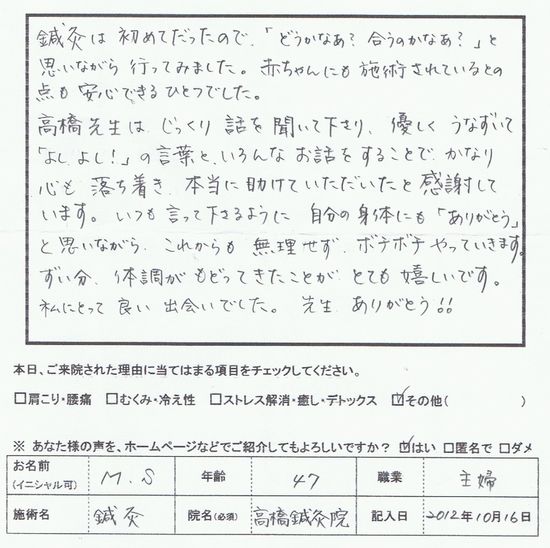 鍼灸は初めてだったので、「どうかなあ？合うのかなあ？」と
思いながら行ってみました。赤ちゃんにも施術されているとの
点も安心できるひとつでした。
高橋先生は、じっくり話を聞いて下さり、優しくうなずいて
「よし、よし！」の言葉と、いろんなお話をすることで、かなり
心も落ち着き、本当に助けていただいたと感謝して
います。いつも言って下さるように自分の身体にも「ありがとう」
と思いながら、これからも無理せず、ボチボチやっていきます。
ずい分、体調がもどってきたことがとても嬉しいです。
私にとって良い出会いでした。先生、ありがとう!!
本日、ご来院された理由に当てはまる項目をチェックしてください。
□肩こり・腰痛 □むくみ・冷え性 □ストレス解消・癒し・デトックス ☑その他( )
※ あなた様の声を、ホームページなどでご紹介してもよろしいですか？ ☑はい □匿名で □ダメ
お名前 (イニシャル可) M.S 年齢 47 職業 主婦
施術名 鍼灸 院名(必須) 高橋鍼灸院 記入日 2012年10月16日